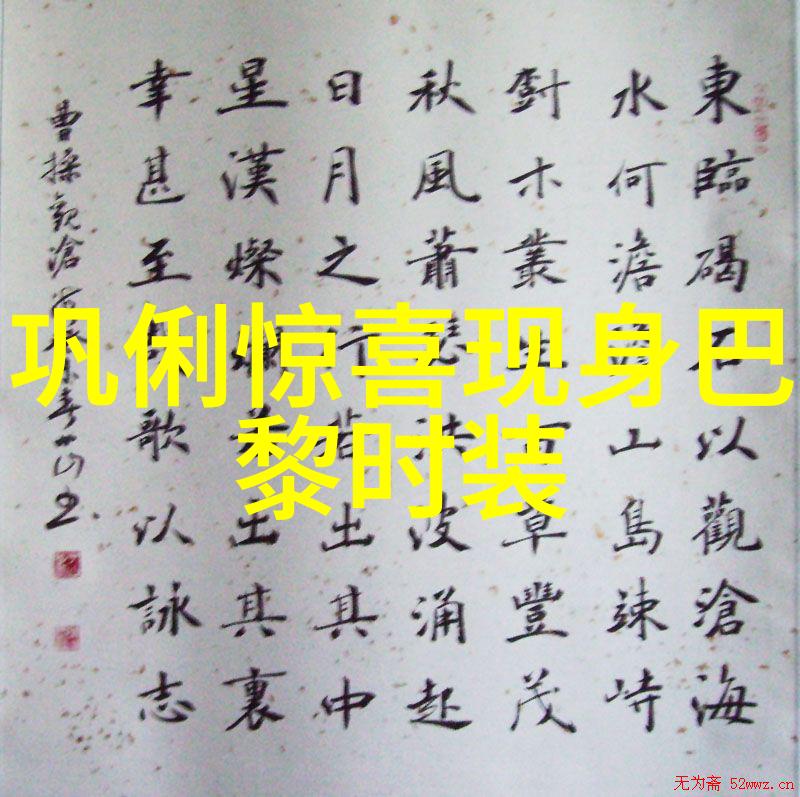 巩俐惊喜现身巴
黎时装
東臨碣石以觀滄海
水何澹澹山島竦峙
木叢生百草豐茂
秋風蕭瑟洪波涌起
日月之行若出其中
星漢燦爛若出其裏
幸甚至哉歌以詠志
曹操觀滄海
无为斋 52wwz.cn